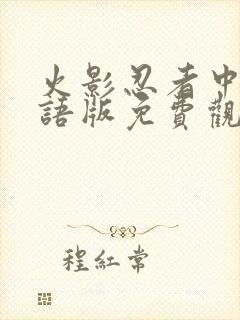 火影忍者中
語版免費觀
程紅常